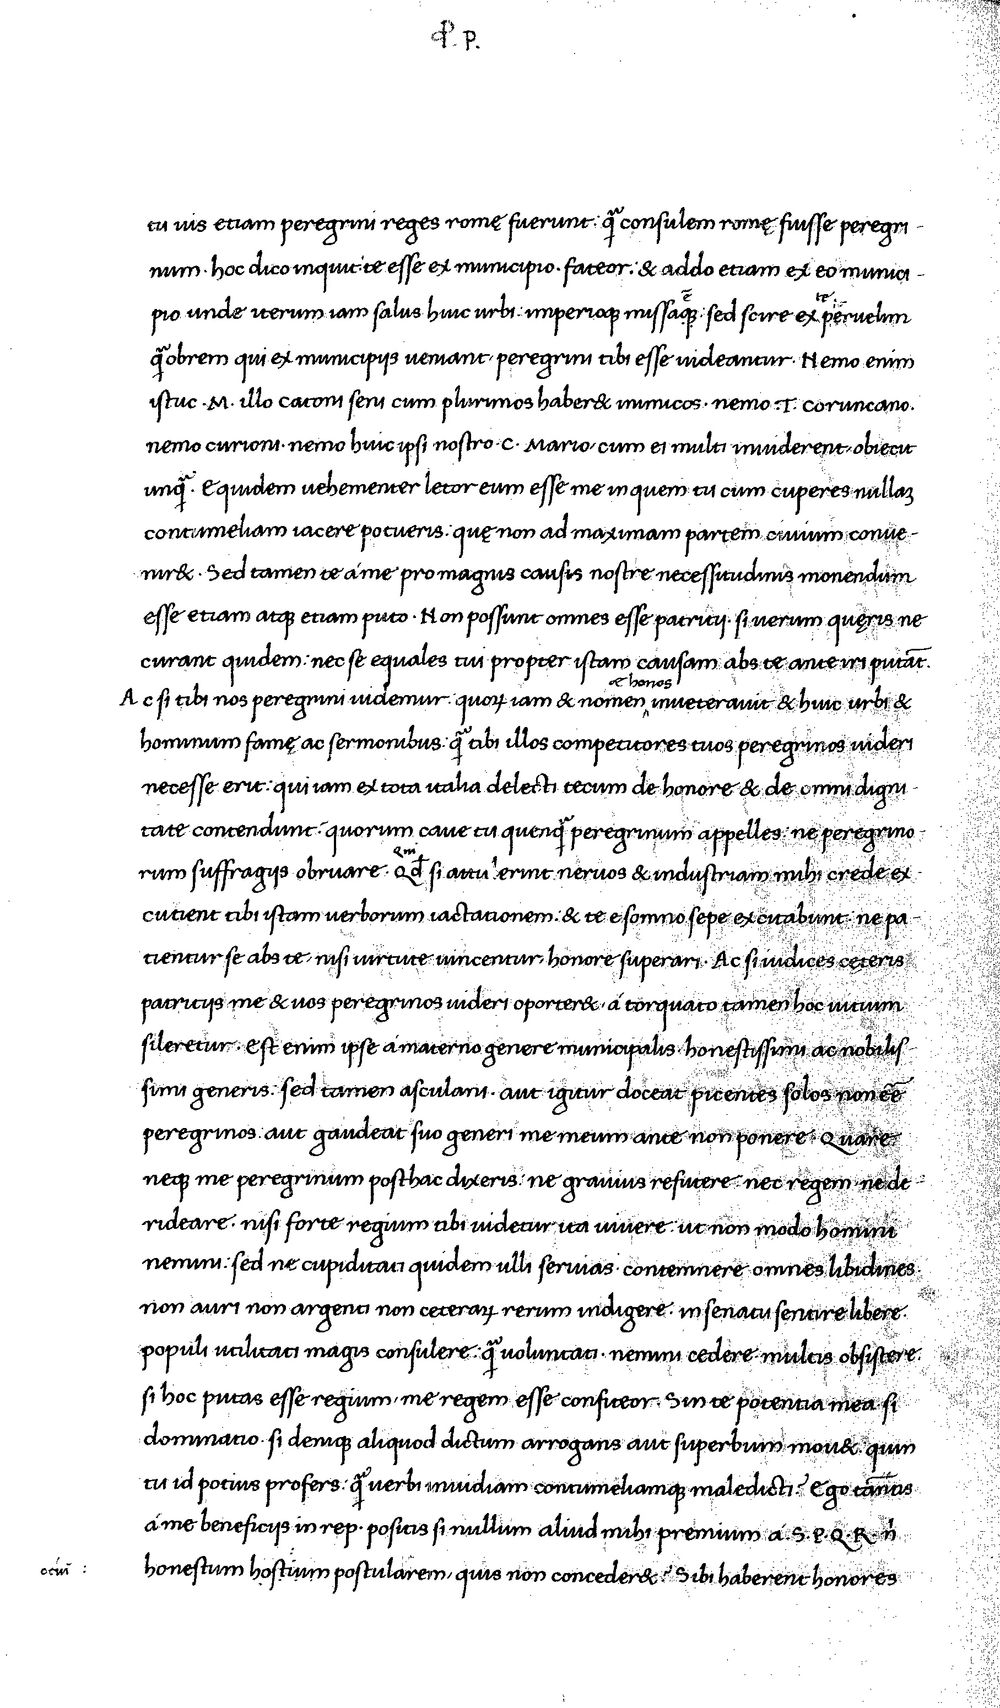 ꝓ. p.
tu uis etiam peregrini reges romę fuerunt: qͣ̃ consulem romę fuisse peregri-
num· hoc dico inquit te esse ex municipio. fateor: & addo etiam ex eo munici-
pio unde iterum iam salus huic urbi: imperioqꝫ missaqꝫ ẽ: sed scire ex te peruelim
qͣ̃obrem qui ex municipijs ueniant, peregrini tibi esse uideantur. Nemo enim
istuc .M. illo catoni seni cum plurimos haber& inimicos. nemo .T. coruncano.
nemo curioni. nemo huic ipsi nostro .C. Mario, cum ei multi inuiderent, obiecit
unqͣ̃. Equidem uehementer letor eum esse me in quem tu cum cuperes nullaꝫ
contumeliam iacere potueris: quę non ad maximam partem ciuium conue-
nir&. Sed tamen te á me pro magnis causis nostre necessitudinis monendum
esse etiam atqꝫ etiam puto. Non possunt omnes esse patritij. si uerum quęris ne
curant quidem: nec se equales tui propter istam causam abs te ante iri putãt.
Ac si tibi nos peregrini uidemur. quoꝝ iam & nomen & honos inueterauit & huic urbi &
hominum famę ac sermonibus: qͣ̃ tibi illos competitores tuos peregrinos uideri
necesse erit: qui iam ex tota italia delecti tecum de honore & de omni digni-
tate contendunt: quorum caue tu quenqͣ̃ peregrinum appelles: ne peregrino-
rum suffragijs obruare. Qđ Qui si attu'erint neruos & industriam mihi crede ex-
cutient tibi istam uerborum iactationem: & te e somno sepe excitabunt: ne pa-
tientur se abs te, nisi uirtute uincentur, honore superari. Ac si iudices cęteris
patritijs me & uos peregrinos uideri oporter&. á torquato tamen hoc uitium
sileretur. Est enim ipse á materno genere municipalis. honestissimi ac nobilis-
simi generis: sed tamen asculani. aut igitur doceat picentes solos non eẽ
peregrinos. aut gaudeat suo generi me meum ante non ponere. Quare
neqꝫ me peregrinum posthac dixeris: ne grauius refutere: nec regem. ne de-
rideare. nisi forte regium tibi uidetur ita uiuere. ut non modo homini
nemini: sed ne cupiditati quidem ulli seruias. contemnere omnes libidines.
non auri non argenti non ceteraꝝ rerum indigere. in senatu sentire libere.
populi utilitati magis consulere. qͣ̃ uoluntati. nemini cedere. multis obsistere.
si hoc putas esse regium. me regem esse confiteor. Sin te potentia mea si
dominatio. si deniqꝫ aliquod dictum arrogans aut superbum mou&. quin
tu id potius profers: qͣ̃ uerbi inuidiam contumeliamqꝫ maledicti? Ego tãtis
á me beneficijs in rep. positis si nullum aliud mihi premium á .S.P.Q.R. ń
honestum hostium postularem, quis non conceder&? Sibi haberent honores
ociũ :